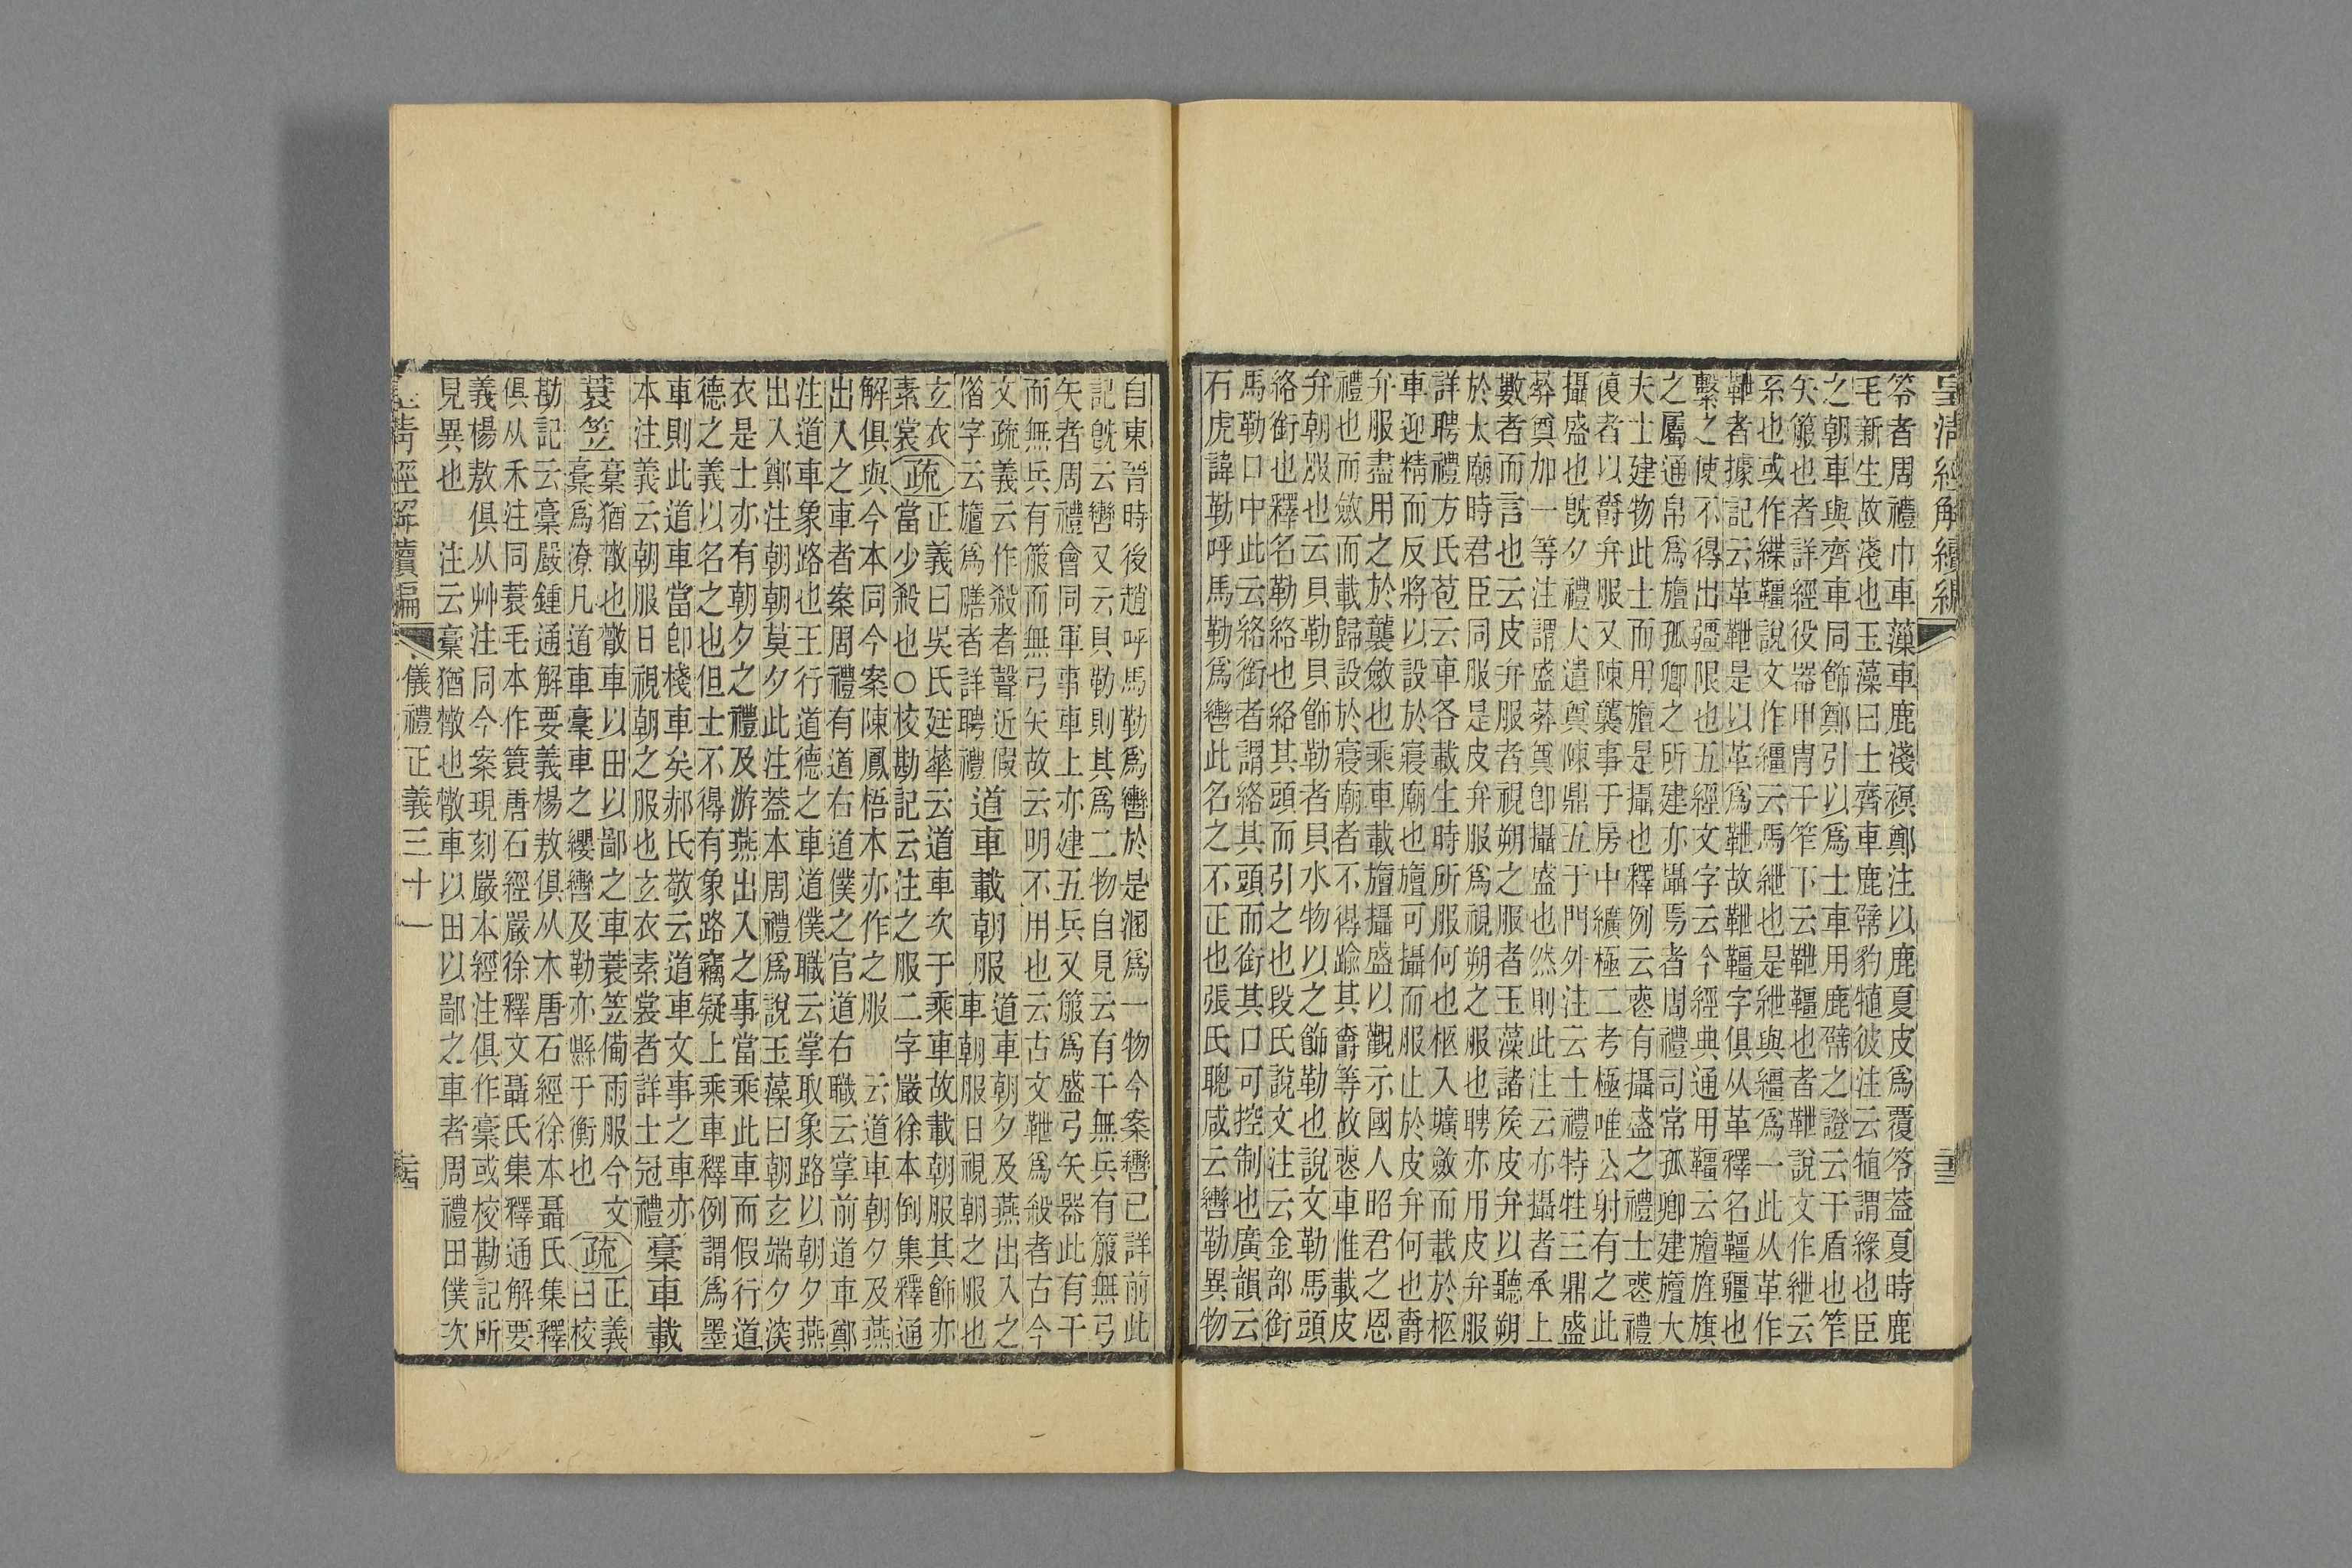 皇清經解續編
笭者周禮巾車藻車鹿淺𧜀鄭注以鹿夏皮爲覆笭蓋夏時鹿
毛新生故淺也玉藻曰士齊車鹿幦豹犆彼注云犆謂緣也臣
之朝車與齊車同飾鄭引以爲士車用鹿幦之證云干盾也笮
矢箙也者詳經役器甲冑干笮下云靾韁也者靾說文作紲云
系也或作緤韁說文作繮云馬紲也是紲與繮爲一此从革作
靾者據記云革靾是以革爲靾故靾韁字俱从革釋名韁疆也
繫之使不得出疆限也五經文字云今經典通用韁云旜旌旗
之屬通帛爲旜孤卿之所建亦攝焉者周禮司常孤卿建旜大
夫士建物此士而用旜是攝也釋例云喪有攝盛之禮士喪禮
復者以爵弁服又陳襲事于房中纊極二考極唯公射有之此
攝盛也旣夕禮大遣奠陳鼎五于門外注云士禮特牲三鼎盛
葬奠加一等注謂盛葬奠卽攝盛也然則此注云亦攝者承上
數者而言也云皮弁服者視朔之服者玉藻諸矦皮弁以聽朔
於太廟時君臣同服是皮弁服爲視朔之服也聘亦用皮弁服
詳聘禮方氏苞云車各載生時所服何也柩入壙斂而載於柩
車迎精而反將以設於寢廟也旜可攝而服止於皮弁何也爵
弁服盡用之於襲斂也乘車載旜攝盛以觀示國人昭君之恩
禮也而斂而載歸設於寢廟者不得踰其爵等故喪車惟載皮
弁朝服也云貝勒貝飾勒者貝水物以之飾勒也說文勒馬頭
絡銜也釋名勒絡也絡其頭而引之也段氏說文注云金部銜
馬勒口中此云絡銜者謂絡其頭而銜其口可控制也廣韻云
石虎諱勒呼馬勒爲轡此名之不正也張氏聰咸云轡勒異物
自東晉時後趙呼馬勒爲轡於是溷爲一物今案轡已詳前此
記旣云轡又云貝勒則其爲二物自見云有干無兵有箙無弓
矢者周禮會同軍事車上亦建五兵又箙爲盛弓矢器此有干
而無兵有箙而無弓矢故云明不用也云古文靾爲殺者古今
文疏義云作殺者聲近假
借字云旜爲膳者詳聘禮
道車載朝服
道車朝夕及燕出入之
車朝服日視朝之服也
玄衣
素裳
疏
正義曰吳氏廷華云道車次于乘車故載朝服其飾亦
當少殺也○校勘記云注之服二字嚴徐本倒集釋通
解俱與今本同今案陳鳳梧本亦作之服 云道車朝夕及燕
出入之車者案周禮有道右道僕之官道右職云掌前道車鄭
注道車象路也王行道德之車道僕職云掌取象路以朝夕燕
出入鄭注朝朝莫夕此注葢本周禮爲說玉藻曰朝玄端夕深
衣是士亦有朝夕之禮及游燕出入之事當乘此車而假行道
德之義以名之也但士不得有象路竊疑上乘車釋例謂爲墨
車則此道車當卽棧車矣郝氏敬云道車文事之車亦
本注義云朝服日視朝之服也玄衣素裳者詳士冠禮
槀車載
蓑笠
槀猶㪚也㪚車以田以鄙之車蓑笠備雨服今文
槀爲潦凡道車槀車之纓轡及勒亦縣于衡也
疏
正義
曰校
勘記云槀嚴鍾通解要義楊敖俱从木唐石經徐本聶氏集釋
俱从禾注同蓑毛本作簑唐石經嚴徐釋文聶氏集釋通解要
義楊敖俱从艸注同今案現刻嚴本經注俱作槀或校勘記所
見異也 注云槀猶㪚也㪚車以田以鄙之車者周禮田僕次
儀禮正義三十一